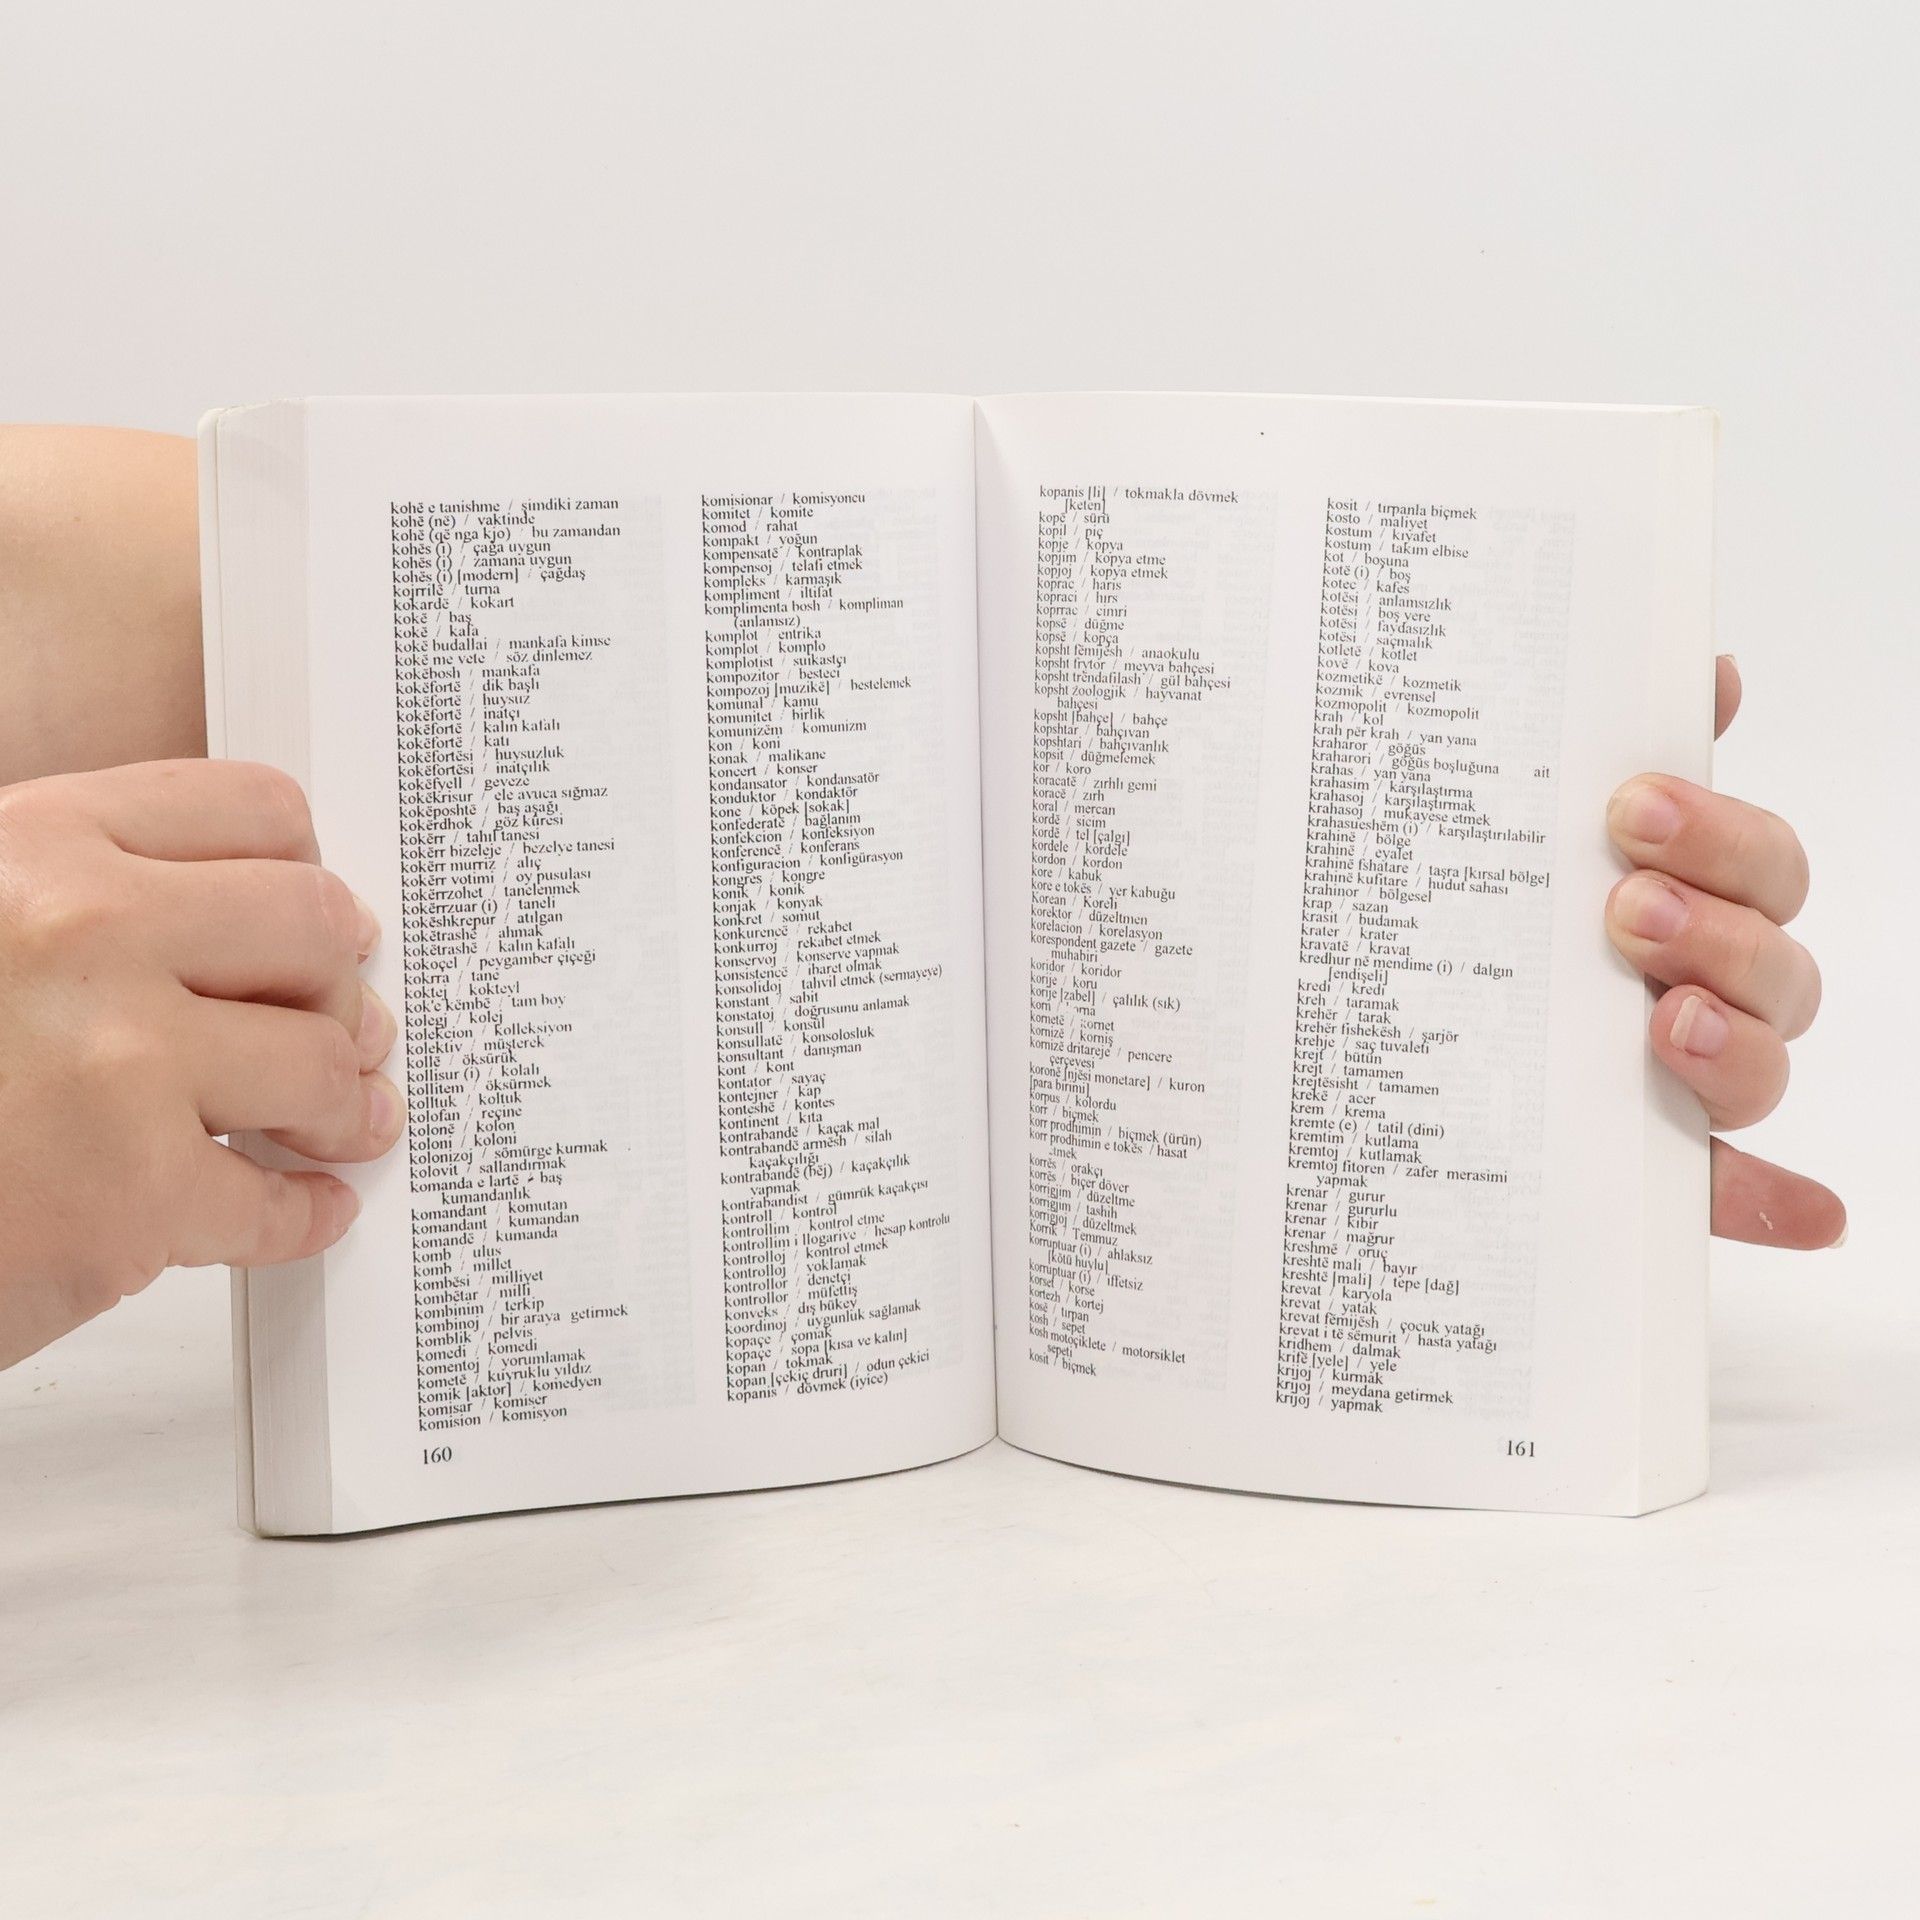 kohë e tanishme / şimdiki zaman
kohë (në) / vaktinde
kohë (që nga kjo) / bu zamandan
kohës (i) / çağa uygun
kohës (i) / zamana uygun
kohës (i) [modern] / çağdaş
kojrrilë / turna
kokardë / kokart
kokë / baş
kokë / kafa
kokë budallai / mankafa kimse
kokë me vete / söz dinlemez
kokëbosh / mankafa
kokëfortë / dik başlı
kokëfortë / huysuz
kokëfortë / inatçı
kokëfortë / kalın kafalı
kokëfortë / katı
kokëfortësi / huysuzluk
kokëfortësi / inatçılık
kokëfyell / geveze
kokëkrisur / ele avuca sığmaz
kokëposhtë / baş aşağı
kokërdhok / göz küresi
kokërr / tahıl tanesi
kokërr bizeleje / bezelye tanesi
kokërr murriz / alıç
kokërr votimi / oy pusulası
kokërrzohet / tanelenmek
kokërrzuar (i) / taneli
kokëshkrepur / atılgan
kokëtrashë / ahmak
kokëtrashë / kalın kafalı
kokoçel / peygamber çiçeği
kokrra / tane
koktej / kokteyl
kok'e këmbë / tam boy
kolegj / kolej
kolekcion / kolleksiyon
kolektiv / müşterek
kollë / öksürük
kollisur (i) / kolalı
kollitem / öksürmek
kolltuk / koltuk
kolofan / reçine
kolonë / kolon
koloni / koloni
kolonizoj / sömürge kurmak
kolovit / sallandırmak
komanda e lartë / baş
kumandanlık
komandant / komutan
komandant / kumandan
komandë / kumanda
komb / ulus
komb / millet
kombësi / milliyet
kombëtar / milli
kombinim / terkip
kombinoj / bir araya getirmek
komblik / pelvis
komedi / komedi
komentoj / yorumlamak
kometë / kuyruklu yıldız
komik [aktor] / komedyen
komisar / komiser
komision / komisyon
160
komisionar / komisyoncu
komitet / komite
komod / rahat
kompakt / yoğun
kompensatë / kontraplak
kompensoj / telafi etmek
kompleks / karmaşık
kompliment / iltifat
komplimenta bosh / kompliman
(anlamsız)
komplot / entrika
komplot / komplo
komplotist / suikastçı
kompozitor / besteci
kompozoj [muzikë] / bestelemek
komunal / kamu
komunitet / birlik
komunizëm / komunizm
kon / koni
konak / malikane
koncert / konser
kondansator / kondansatör
konduktor / kondaktör
kone / köpek [sokak]
konfederatë / bağlanım
konfekcion / konfeksiyon
konferencë / konferans
konfiguracion / konfigürasyon
kongres / kongre
konik / konik
konjak / konyak
konkret / somut
konkurencë / rekabet
konkurroj / rekabet etmek
konservoj / konserve yapmak
konsistencë / ibaret olmak
konsolidoj / tahvil etmek (sermayeye)
konstant / sabit
konstatoj / doğrusunu anlamak
konsull / konsül
konsullatë / konsolosluk
konsultant / danışman
kont / kont
kontator / sayaç
kontejner / kap
konteshë / kontes
kontinent / kıta
kontrabandë / kaçak mal
kontrabandë armësh / silah
kaçakçılığı
kontrabandë (bëj) / kaçakçılık
yapmak
kontrabandist / gümrük kaçakçısı
kontroll / kontrol
kontrollim / kontrol etme
kontrollim i llogarive / hesap kontrolu
kontrolloj / kontrol etmek
kontrolloj / yoklamak
kontrollor / denetçi
kontrollor / müfettiş
konveks / dış bükey
koordinoj / uygunluk sağlamak
kopaçe / çomak
kopaçe / sopa [kısa ve kalın]
kopan / tokmak
kopan [çekiç druri] / odun çekici
kopanis / dövmek (iyice)
kopanis [li] / tokmakla dövmek
[keten]
kope / sürü
kopil / piç
kopje / kopya
kopjim / kopya etme
kopjoj / kopya etmek
koprac / haris
kopraci / hırs
koprrac / cimri
kopsë / düğme
kopsë / kopça
kopsht fëmijësh / anaokulu
kopsht frytor / meyva bahçesi
kopsht trëndafilash / gül bahçesi
kopsht zoologjik / hayvanat
bahçesi
kopsht [bahçe] / bahçe
kopshtar / bahçıvan
kopshtari / bahçıvanlık
kopsit / düğmelemek
kor / koro
koracatë / zırhlı gemi
koracë / zırh
koral / mercan
kordë / sicim
kordë / tel [çalgı]
kordele / kordele
kordon / kordon
kore / kabuk
kore e tokës / yer kabuğu
Korean / Koreli
korektor / düzeltmen
korelacion / korelasyon
korespondent gazete / gazete
muhabiri
koridor / koridor
korije / koru
korije [zabel] / çalılık (sık)
korn /
kornetë / kornet
kornizë / korniş
kornizë dritareje / pencere
çerçevesi
koronë [njësi monetare] / kuron
[para birimi]
korpus / kolordu
korr / biçmek
korr prodhimin / biçmek (ürün)
korr prodhimin e tokës / hasat
etmek
korrës / orakçı
korrës / biçer döver
korrigjim / düzeltme
korrigjim / tashih
korrigjoj / düzeltmek
Korrik / Temmuz
korruptuar (i) / ahlaksız
[kötü huylu]
korruptuar (i) / iffetsiz
korset / korse
kortezh / kortej
kosë / tırpan
kosh / sepet
kosh motoçiklete / motorsiklet
sepeti
kosit / biçmek
kosit / tırpanla biçmek
kosto / maliyet
kostum / kıyafet
kostum / takım elbise
kot / boşuna
kotë (i) / boş
kotec / kafes
kotësi / anlamsızlık
kotësi / boş yere
kotësi / faydasızlık
kotësi / saçmalık
kotletë / kotlet
kovë / kova
kozmetikë / kozmetik
kozmik / evrensel
kozmopolit / kozmopolit
krah / kol
krah për krah / yan yana
kraharor / göğüs
kraharori / göğüs boşluğuna ait
krahas / yan yana
krahasim / karşılaştırma
krahasoj / karşılaştırmak
krahasoj / mukayese etmek
krahasueshëm (i) / karşılaştırılabilir
krahinë / bölge
krahinë / eyalet
krahinë fshatare / taşra [kırsal bölge]
krahinë kufitare / hudut sahası
krahinor / bölgesel
krap / sazan
krasit / budamak
krater / krater
kravatë / kravat
kredhur në mendime (i) / dalgın
[endişeli]
kredi / kredi
kreh / taramak
krehër / tarak
krehër fishekësh / şarjör
krehje / saç tuvaleti
krejt / bütün
krejt / tamamen
krejtësisht / tamamen
krekë / acer
krem / krema
kremte (e) / tatil (dini)
kremtim / kutlama
kremtoj / kutlamak
kremtoj fitoren / zafer merasimi
yapmak
krenar / gurur
krenar / gururlu
krenar / kibir
krenar / mağrur
kreshmë / oruç
kreshtë mali / bayır
kreshtë [mali] / tepe [dağ]
krevat / karyola
krevat / yatak
krevat fëmijësh / çocuk yatağı
krevat i të sëmurit / hasta yatağı
kridhem / dalmak
krifë [yele] / yele
krijoj / kurmak
krijoj / meydana getirmek
krijoj / yapmak
161